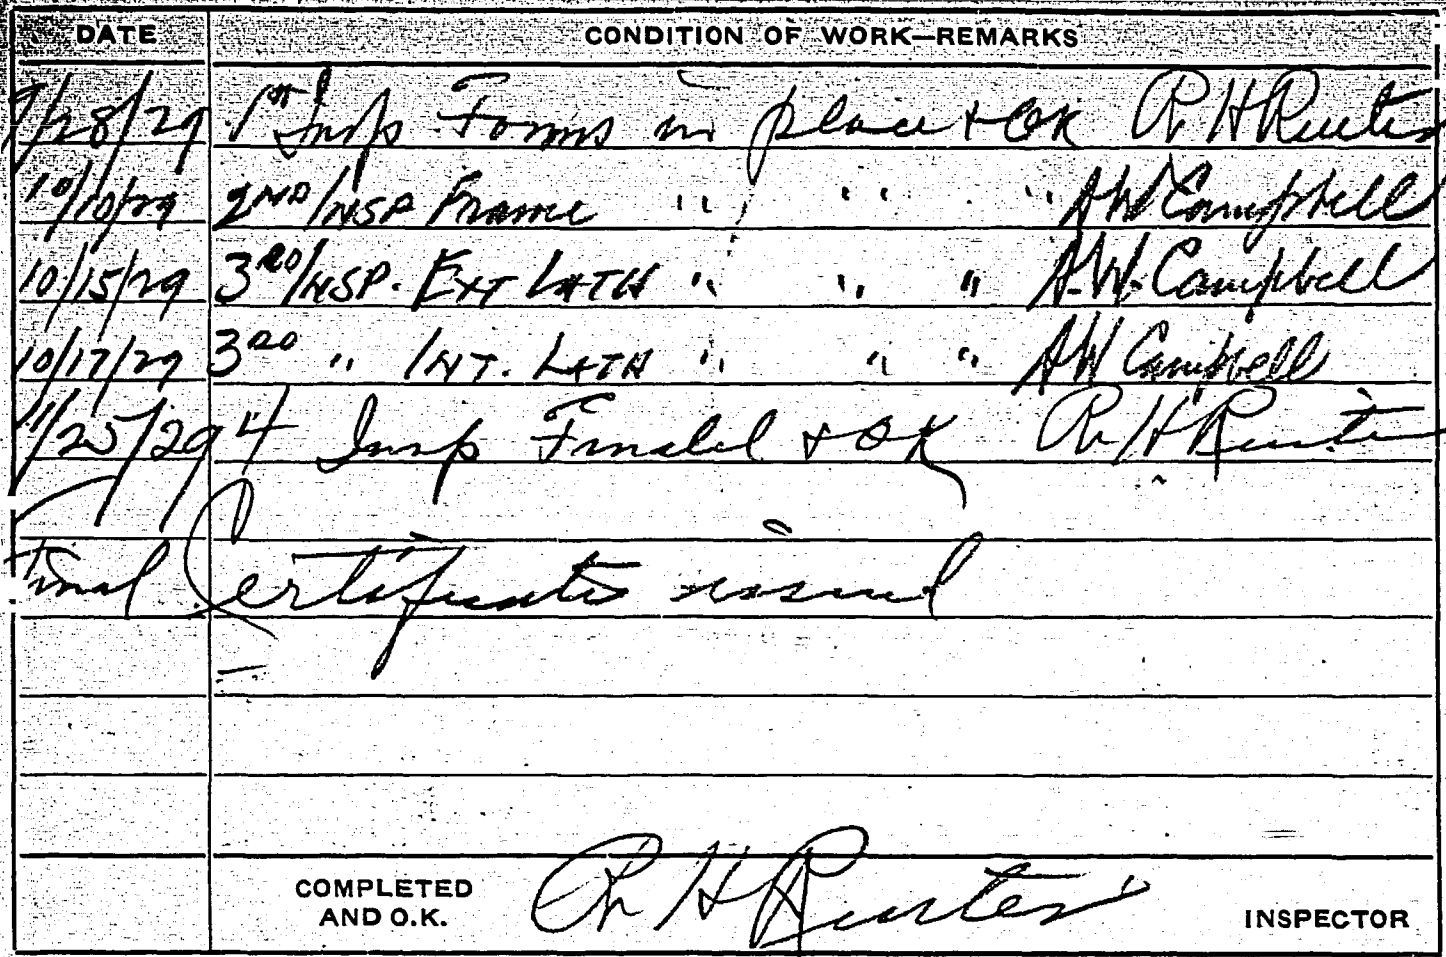 DATE CONDITION OF WORK—REMARKS
9/28/29 1st Insp Forms in place + OK R H
10/10/29 2ND INSP Frame " " " AW Campbell
10/15/29 3RD INSP. EXT LATH " " " A.W. Campbell
10/17/29 3RD " INT. LATH " " " AW Campbell
11/25/29 4 Insp + OK R H
Final Certificate issued
COMPLETED AND O.K. R H INSPECTOR